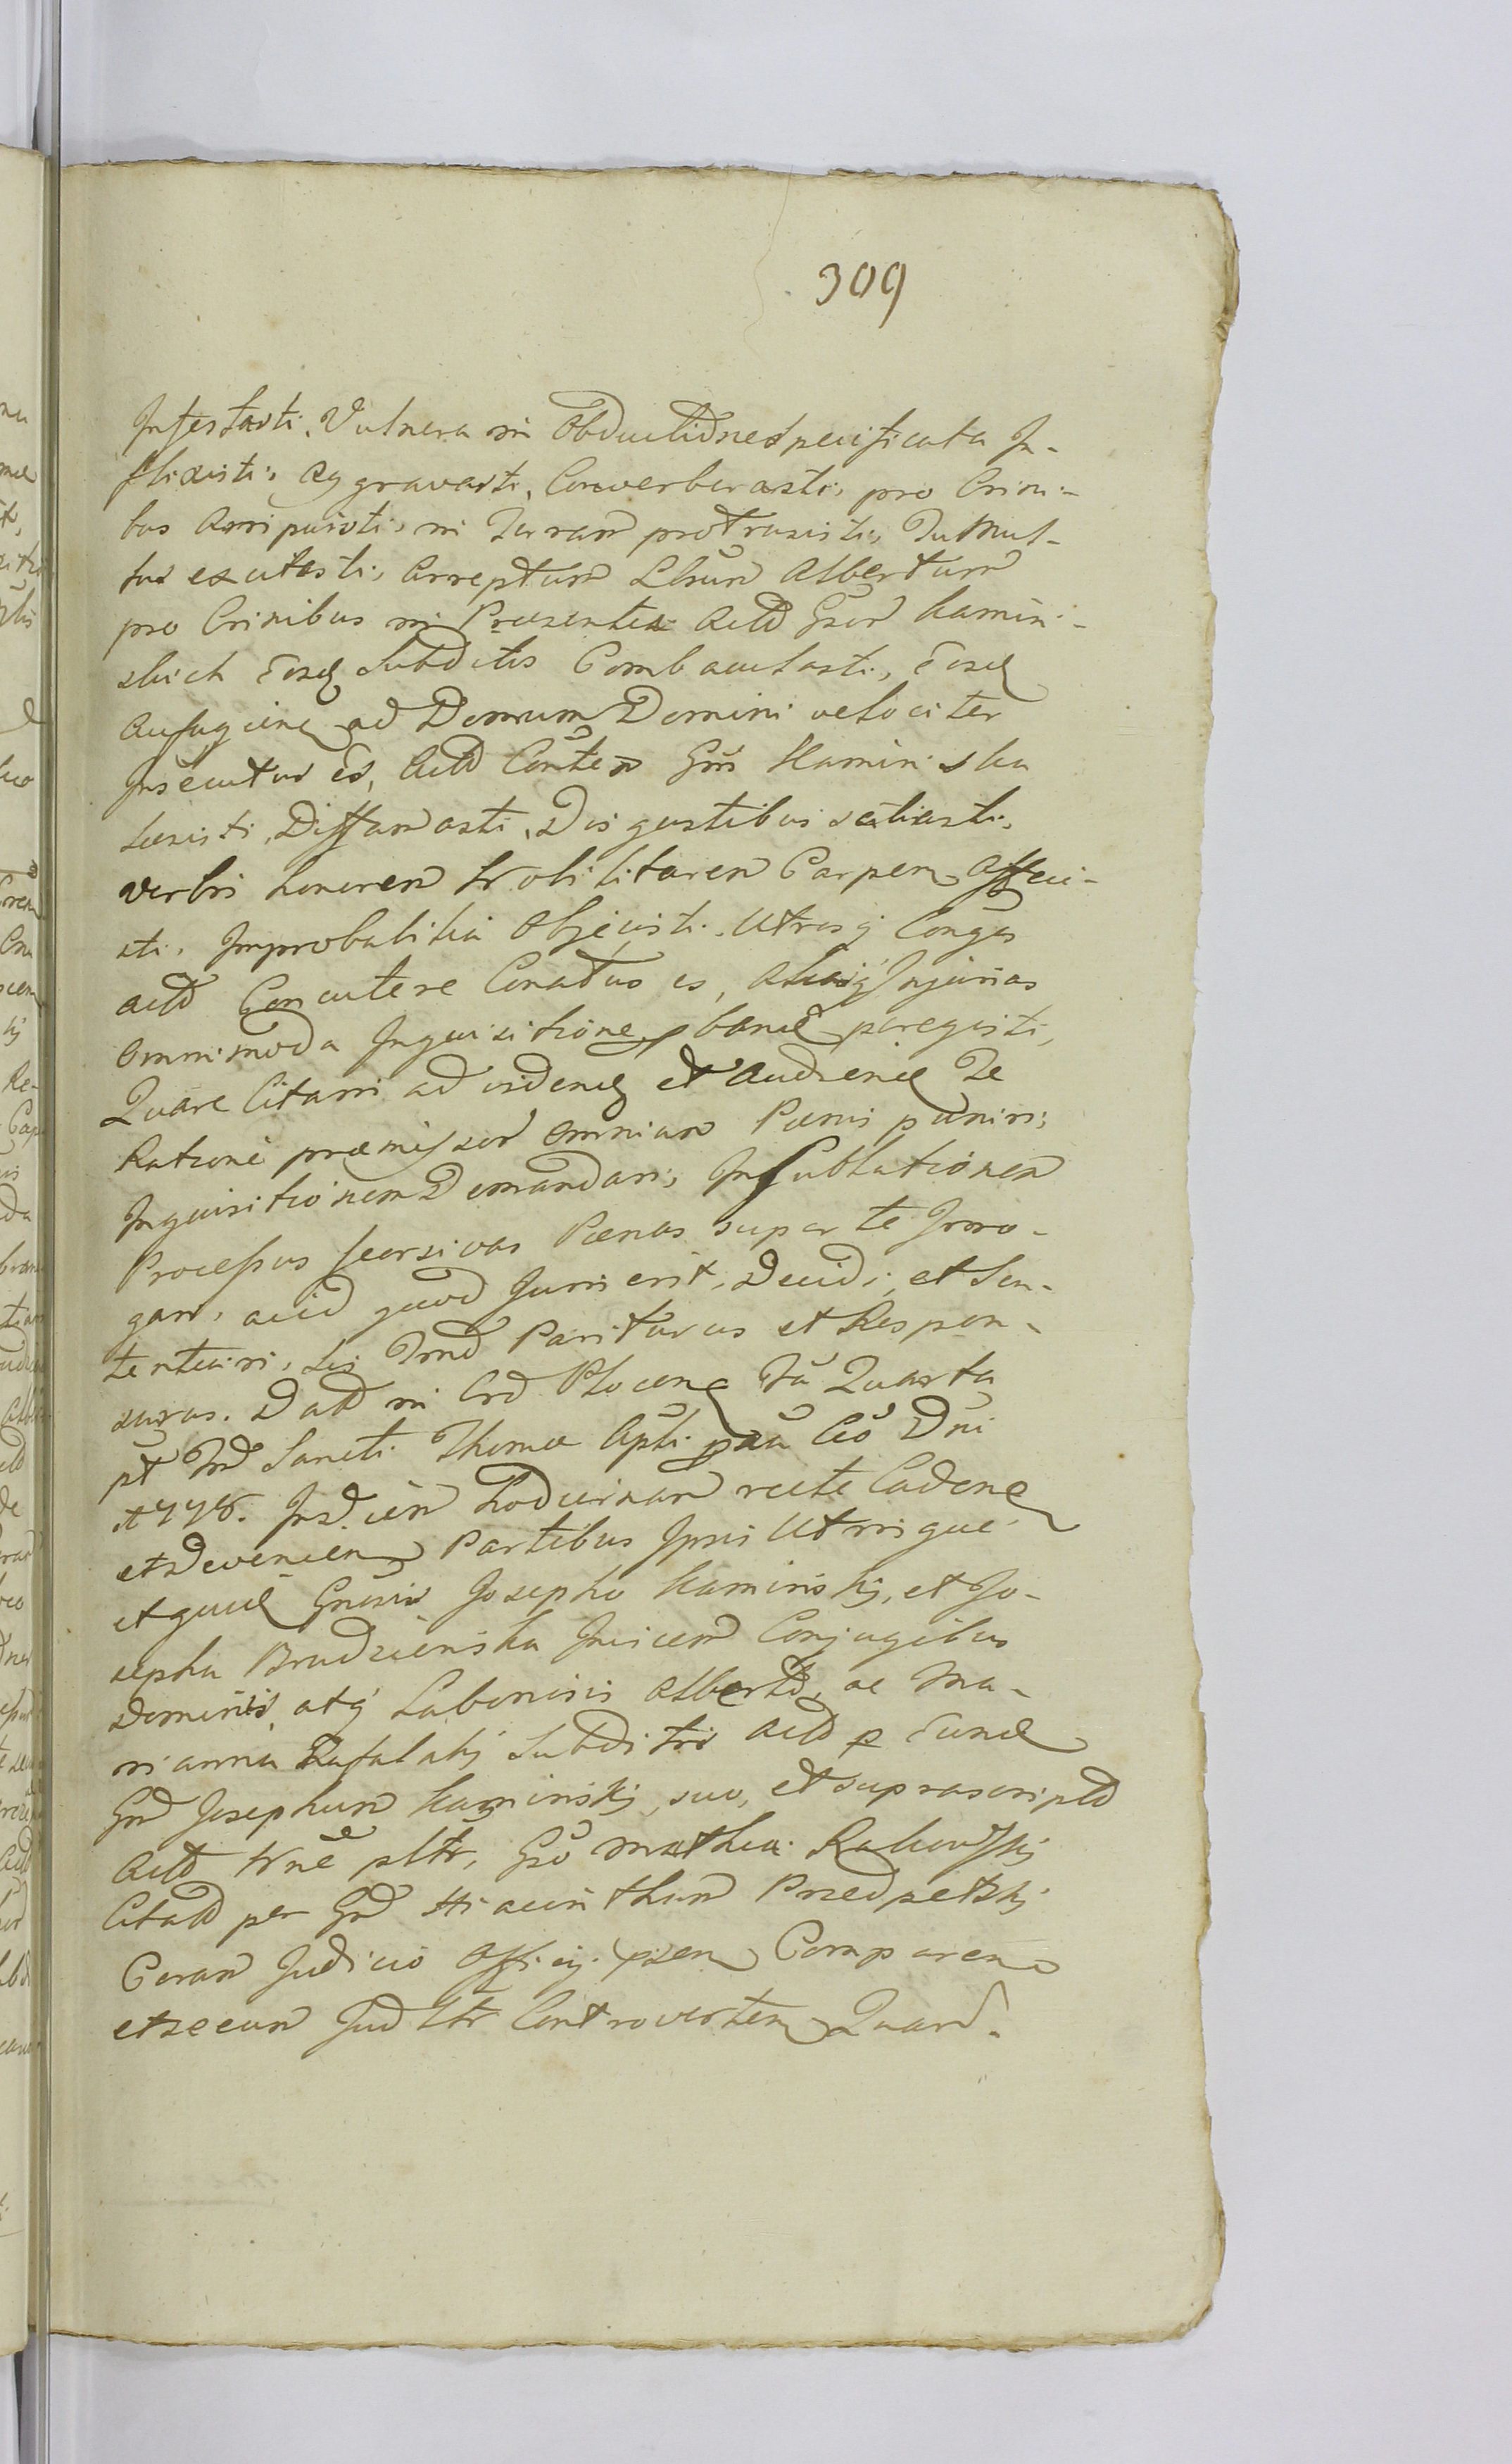 309
Infestasti, Vulnera in Obductione specificata In-
flixisti, Aggravasti, Converberasti, pro Crini-
bus Arripuisti, in Terram protraxisti, Tumul-
tus excitasti, Arreptum Lbrum Albertum
pro Crinibus in Praesentia Actd Gsor Kamin-
skich Eosq Subditis Combaculasti, Eosq
Aufugien ad Domum Domini velociter
Insecutus es, Actd Conten Gm Kaminska
Laesisti, Diffamasti, Disgustibus satiasti,
verbis honorem Nobilitarem Carpen Affeci-
sti, Improbabilia Objecisti, Utrosq Conges
actd Concutere Conatus es, Aliasq Injurias
Omnimoda Inquisitione pband peregisti,
Quare Citaris ad vidend et Audiend Te
Ratione praemissor Omnium Poenis puniri,
Inquisitionem Demandari, In Sublationem
Processus seorsivas Poenas super te Irro-
gari, acid quod Juris erit, Decidi, et Sen-
tentiari, Sis Tmd Pariturus et Respon-
surus. Datt in Crd Plocen Fa Quarta
pt Fd Sancti Thomae Apli pxa Ao Dni
1778. Insd. ien hodiernam recte Caden
et Devenien Partibus Ipsis Utrisque
etquid Gnosis Josepho Kaminskij, et Jo-
sepha Brudzienska Invicem Conjugibus
Dominis, atq Laboriosis Albertd, ac Ma-
rianna Rafalskij Subditis Actd p Eund
Gnd Josephum Kaminskij, suo, et suprascriptd
Actd Nne pltr, Gso Mathia Rakowskij
Citatd per Gnd Hiacinthum Przedpelskij
Coram Judicio Officij pxen Comparen
et secum Jud ltr Controverten Quard.